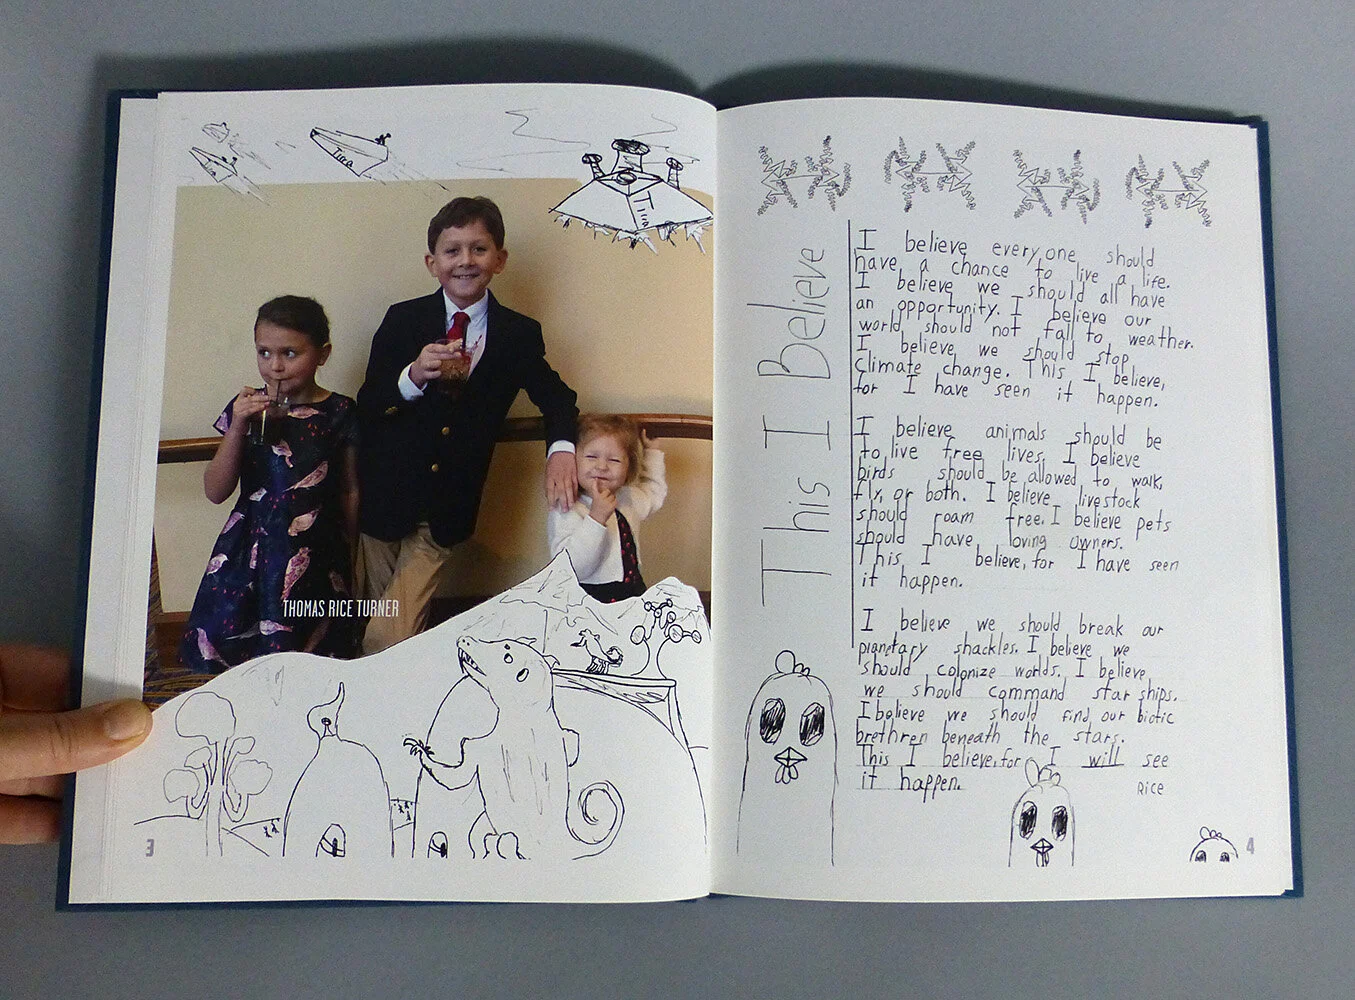 Tirra
Tirra
THOMAS RICE TURNER
3
This I Believe
I believe everyone should
have a chance to live a life.
I believe we should all have
an opportunity. I believe our
world should not fall to weather.
I believe we should stop
Climate change. This I believe,
for I have seen it happen.
I believe animals should be
to live free lives. I believe
birds should be allowed to walk,
fly, or both. I believe livestock
should roam free. I believe pets
should have loving owners.
This I believe, for I have seen
it happen.
I believe we should break our
planetary shackles. I believe we
should colonize worlds. I believe
we should command star ships.
I believe we should find our biotic
brethren beneath the stars.
This I believe, for I will see
it happen.
Rice
4